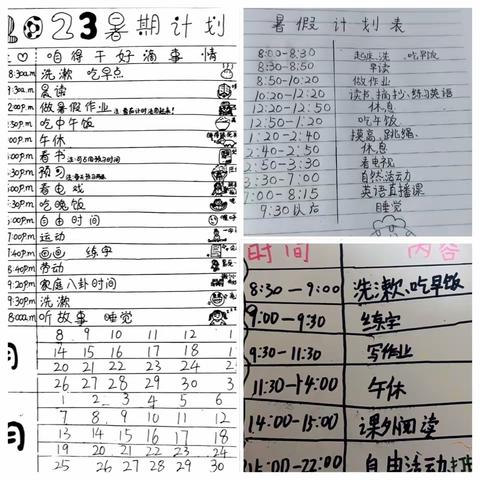 23暑期计划
咱得干好滴事情
8:30a.m 洗漱 吃早点
9:30a.m 晨读
2:00p.m 做暑假作业
:30p.m 吃中午饭
:00p.m 午休
:00p.m 看书
:30p.m 预习
:00p.m 看电戏
6:00p.m 吃晚饭
6:00p.m 自由时间
7:00p.m 运动
:00p.m 画画 练字
8:40p.m 劳动
9:20p.m 家庭八卦时间
9:30p.m 洗漱
8:00a.m 听故事 睡觉
8 9 10 11 12 1
14 15 16 17 18 1
20 21 22 23 24 2
26 27 28 29 30 3
月
1 2 3 4 5 6
7 8 9 10 11 12
13 14 15 16 17 18
19 20 21 22 23 24
25 26 27 28 29 30
月
暑假计划表
8:00-8:30 起床、洗、吃早饭
8:30-8:50 早读
8:50-10:20 做作业
10:20-12:20 读书、摘抄、练习英语
12:20-12:50 休息
12:50-1:20 吃午饭
1:20-2:40 摸高、跳绳
2:40-2:50 休息
2:50-3:30 看电视
3:30-7:00 自然活动
7:00-8:15 英语直播课
9:30以后 睡觉
时间 内容
8:30-9:00 洗漱、吃早饭
9:00-9:30 练字
9:30-11:30 写作业
11:30-14:00 午休
14:00-15:00 课外阅读
15:00-22:00 自由活动